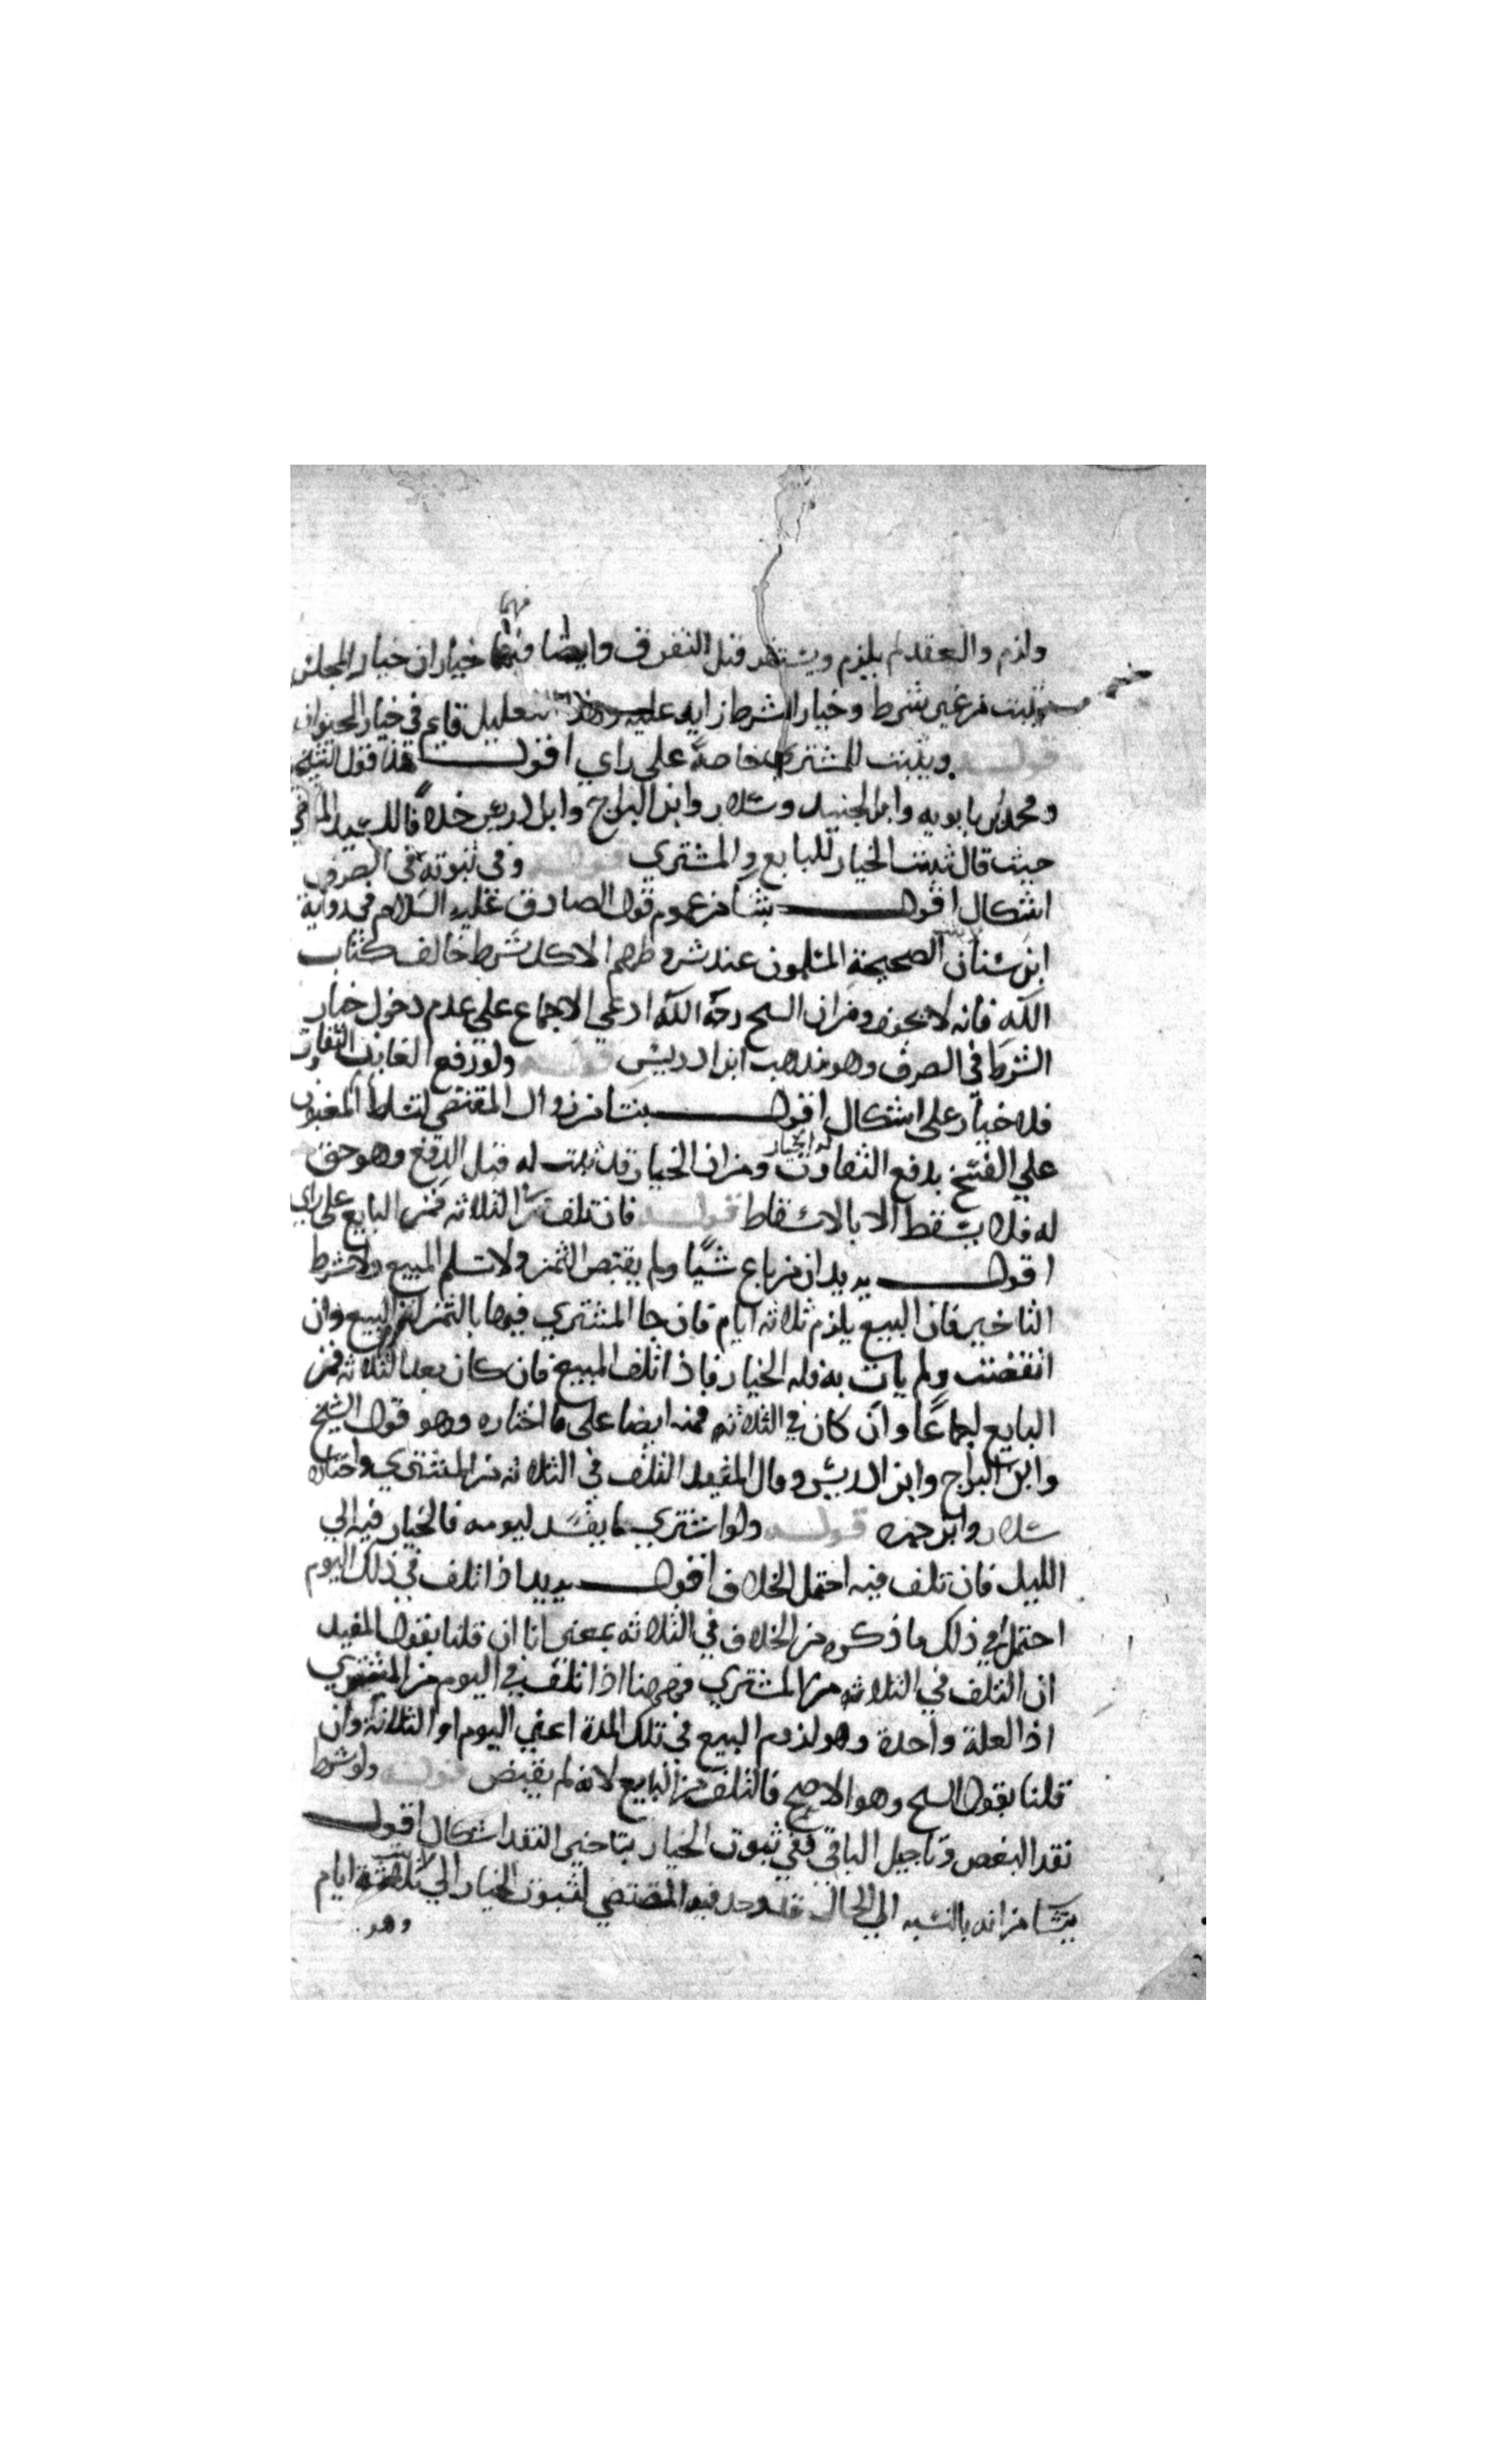 ولزم والعقد لم يلزم ويستقر قبل التفرق وايضا فهما خياران خيار المجلس
يثبت من غير شرط وخيار الشرط زايد عليه وهذا التعليل قايم في خيار الحيوان
قوله ويثبت للمشتري خاصة على راي اقول هذا قول الشيخ
ومحمد بن بابويه وابن الجنيد وسلار وابن البراج وابن ادريس خلافا للسيد المرتضى
حيث قال ثبت الخيار للبايع والمشتري قوله وفي ثبوته في الصرف
اشكال اقول ينشا من عموم قول الصادق عليه السلام في رواية
ابن سنان الصحيحة المسلمون عند شروطهم الا كل شرط خالف كتاب
الله فانه لا يجوز ومن ان الشيخ رحمه الله ادعى الاجماع على عدم دخول خيار
الشرط في الصرف وهو مذهب ابن ادريس قوله ولو دفع الغابن التفاوت
فلا خيار على اشكال اقول ينشا من زوال المقتضي لتسلط المغبون
على الفسخ بدفع التفاوت ومن ان الخيار قد ثبت له قبل الدفع وهو حق
له فلا يسقط الا بالاسقاط قوله فان تلف في الثلاثه فمن البايع على راي
اقول يريد ان من باع شيا ولم يقبض الثمن ولا سلم المبيع ولا شرط
التاخير فان البيع يلزم ثلاثه ايام فان جا المشتري فيها بالثمن لزم البيع وان
انقضت ولم يات به فله الخيار فاذا تلف المبيع فان كان بعد الثلاثه فمن
البايع اجماعا وان كان في الثلاثه فمنه ايضا على ما اختاره وهو قول الشيخ
وابن البراج وابن ادريس وقال المفيد التلف في الثلاثه من المشتري واختاره
سلار وابن حمزه قوله ولو اشتري ما يفسد ليومه فالخيار فيه الي
الليل فان تلف فيه احتمل الخلاف اقول يريد اذا تلف في ذلك اليوم
احتمل في ذلك ما ذكره من الخلاف في الثلاثه بمعنى انا ان قلنا بقول المفيد
ان التلف في الثلاثه من المشتري فههنا اذا تلف في اليوم من المشتري
اذ العلة واحدة وهو لزوم البيع في تلك المدة اعني اليوم او الثلاثة وان
قلنا بقول الشيخ وهو الاصح فالتلف من البايع لانه لم يقبض قوله ولو شرط
نقد البعض وتاجيل الباقي ففي ثبوت الخيار بتاخير النقد اشكال اقول
ينشا من انه بالنسبه الي الحال قد وجد فيه المقتضي لثبوت الخيار الي ثلاثة ايام
وهو